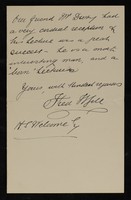 Our friend Mr Dewey had
a very cordial reception &
his lecture was a great
success — he is a most
interesting man, and a
"born" lecturer
Yours, with kindest regards
Fred
H S Wellcome Esq